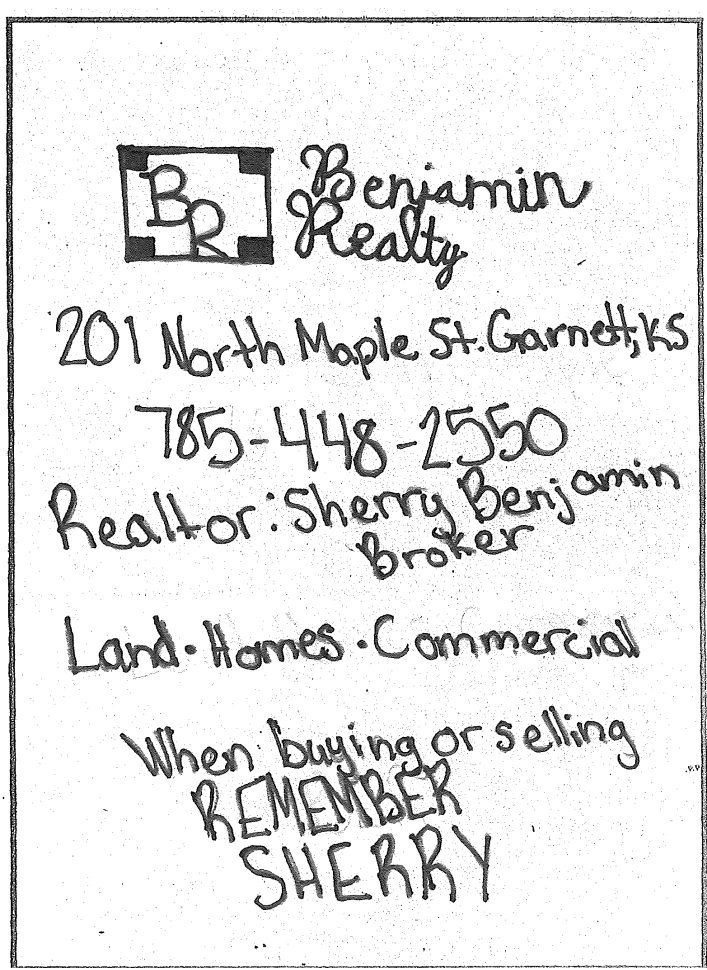 BR
Benjamin
Realty
201 North Maple St. Garnett, KS
785-448-2550
Realtor: Sherry Benjamin
Broker
Land · Homes · Commercial
When buying or selling
REMEMBER
SHERRY